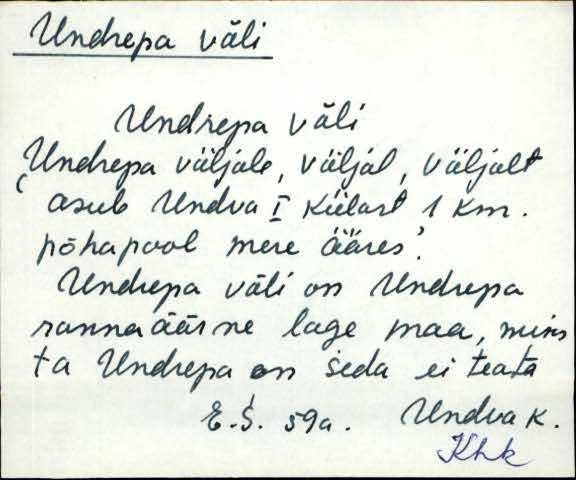 Undrepa väli
Undrepa väli
Undrepa väljale, väljal, väljalt
(asub Undva I külast 1 km.
põhapool mere ääres'.
Undrepa väli on Undrepa
rannaäärne lage maa, miks
ta Undrepa on seda ei teata
E.S. 59a. Undva k.
Khk